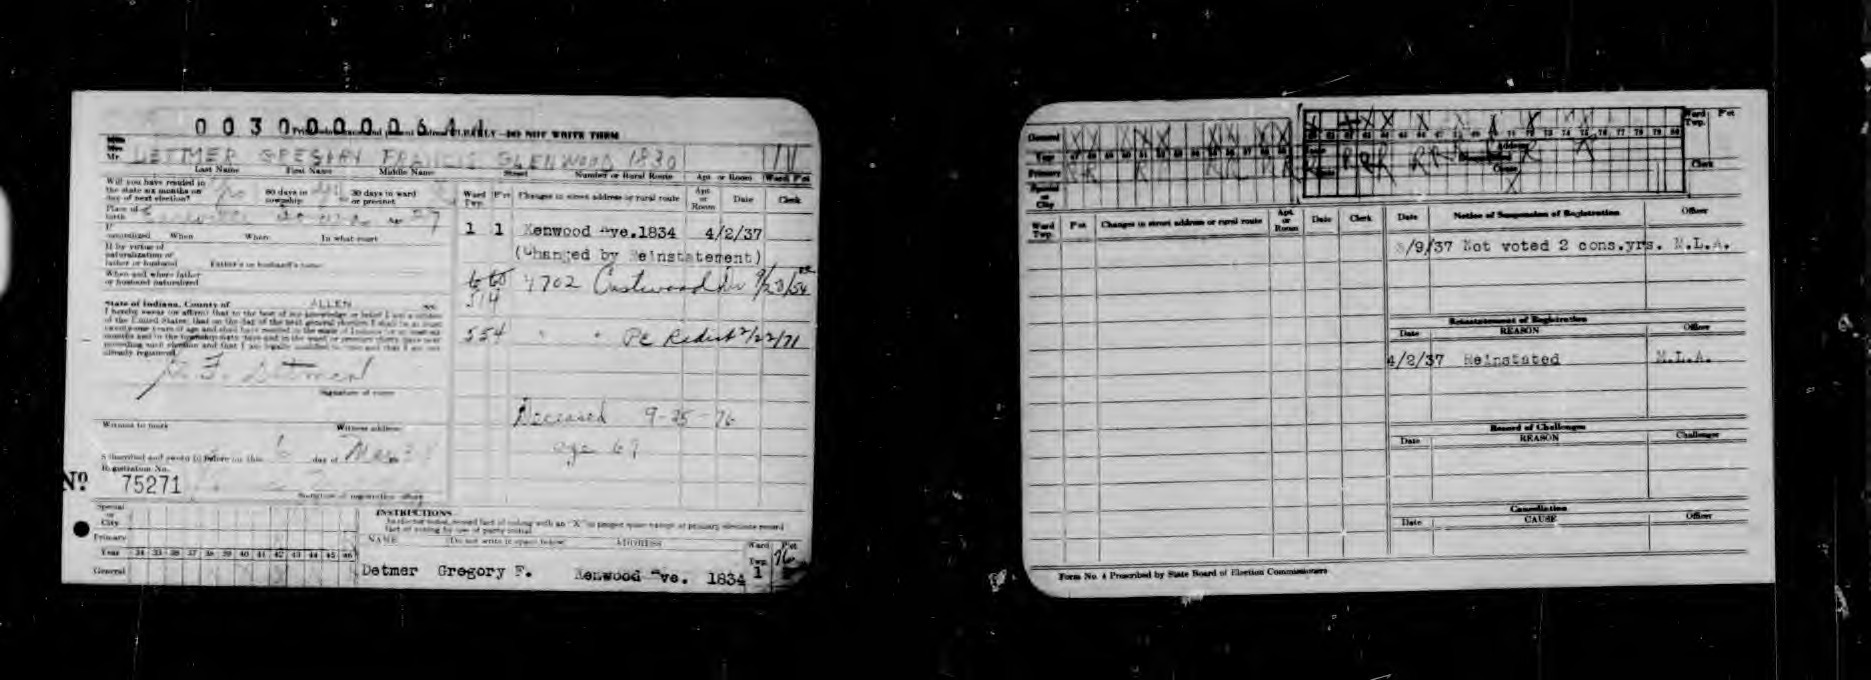 0030000002644
PLAINLY—DO NOT WRITE THEM
Miss
Mrs.
Mr. DETTMER GREGORY FRANCIS GLENWOOD 1830
Last Name First Name Middle Name Street Number or Rural Route Apt. or Room Ward Pct
Will you have resided in
the state six months on
day of next election? 60 days in
township 30 days in ward
or precinct
Place of
birth Age 27
If
naturalized When Where In what court
If by virtue of
naturalization of
father or husband Father's or husband's name
When and where father
or husband naturalized
State of Indiana, County of ALLEN ss:
I hereby swear (or affirm) that to the best of my knowledge or belief I am a citizen
of the United States; that on the day of the next general election I shall be at least
twenty-one years of age and shall have resided in the state of Indiana for at least six
months and in the township sixty days and in the ward or precinct thirty days next
preceding such election and that I am legally qualified to vote and that I am not
already registered.
G. F. Dettmer
Signature of voter
Witness to mark Witness address
Subscribed and sworn to before me this 6 day of Mar
Registration No.
No. 75271
Signature of registration officer
Ward
Twp. Pct Changes in street address or rural route Apt.
or
Room Date Clerk
1 1 Kenwood Ave.1834 4/2/37
(Changed by Reinstatement)
4702 Eastwood Dr 9/23/54
514
554 " " Pc Redist 2/22/71
Deceased 9-25-76
age 69
Special
or
City
Primary
Year 34 35 36 37 38 39 40 41 42 43 44 45 46
General
INSTRUCTIONS
In the lower notes, record fact of voting with an "X" in proper space except at primary elections record
fact of voting by use of party initial
NAME (Do not write in space below) ADDRESS Ward
Twp. Pct
Detmer Gregory F. Kenwood Ave. 1834 1
76
General
Year 47 48 49 50 51 52 53 54 55 56 57 58 59 60 61 62 63 64 65 66 67 68 69 70 71 72 73 74 75 76 77 78 79 80
Primary R R R R R R R R R R R R R
Special
or
City
Ward
Twp. Pct
Clerk
Ward
Twp. Pct Changes in street address or rural route Apt.
or
Room Date Clerk
Date Notice of Suspension of Registration Officer
/9/37 Not voted 2 cons.yrs. M.L.A.
Reinstatement of Registration
Date REASON Officer
4/2/37 Reinstated M.L.A.
Record of Challenges
Date REASON Challenger
Cancellation
Date CAUSE Officer
Form No. 4 Prescribed by State Board of Election Commissioners